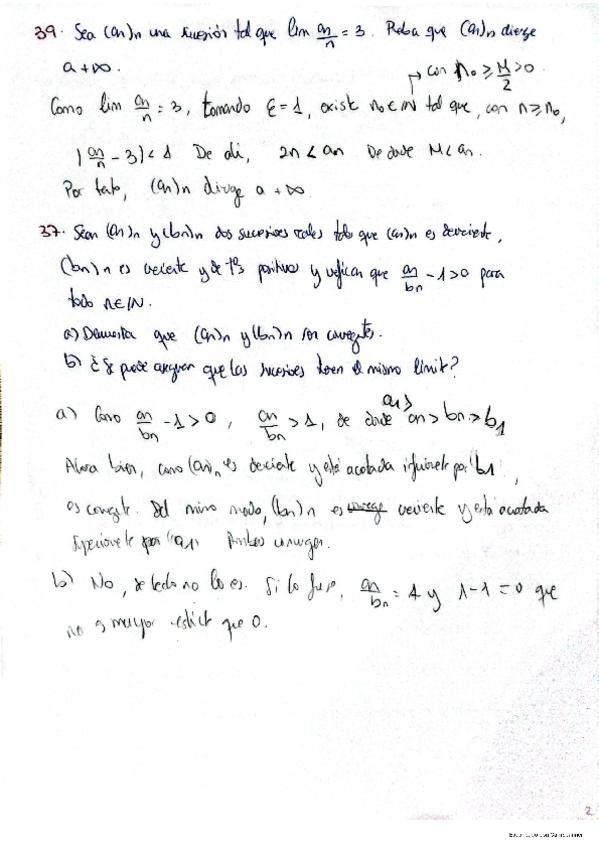 39. Sea (an)n una sucesión tal que lim an/n = 3. Prueba que (an)n diverge
a +∞.
con n₀ ≥ M/2 > 0
Como lim an/n = 3, tomando ε = 1, existe n₀ ∈ ℕ tal que, con n ≥ n₀,
|an/n - 3| < 1 De ahí, 2n < an De donde M < an.
Por tanto, (an)n diverge a +∞.
37. Sean (an)n y (bn)n dos sucesiones reales tales que (an)n es decreciente,
(bn)n es creciente y de tºs positivos y verifican que an/bn - 1 > 0 para
todo n∈ℕ.
a) Demuestra que (an)n y (bn)n son convergentes.
b) ¿Se puede asegurar que las sucesiones tienen el mismo límite?
a) Como an/bn - 1 > 0, an/bn > 1, de donde a1 ≥ an > bn ≥ b1
Ahora bien, como (an)n es decreciente y está acotada inferiormente por b1,
es convergente. Del mismo modo, (bn)n es creciente y está acotada
superiormente por a1. Ambas convergen.
b) No, de hecho no lo es. Si lo fuese, an/bn = 1 y 1 - 1 = 0 que
no es mayor estrict que 0.
2